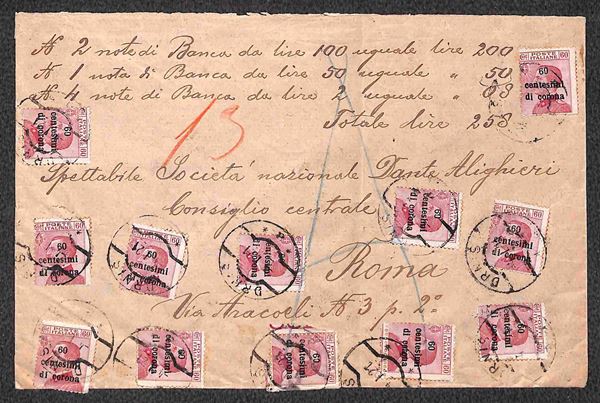 N 2 note di Banca da lire 100 uguale lire 200
N 1 nota di Banca da lire 50 uguale " 50
N 4 note di Banca da lire 2 uguale " 08
Totale lire 258
13
Spettabile Società nazionale Dante Alighieri
Consiglio centrale
Roma
Via Aracoeli N. 3 p. 2º
POSTE ITALIANE
60
centesimi
di corona
60
centesimi
di corona
60
centesimi
di corona
60
centesimi
di corona
60
centesimi
di corona
60
centesimi
di corona
60
centesimi
di corona
60
centesimi
di corona
60
centesimi
di corona
60
centesimi
di corona
60
centesimi
di corona
60
centesimi
di corona
DRNIŠ